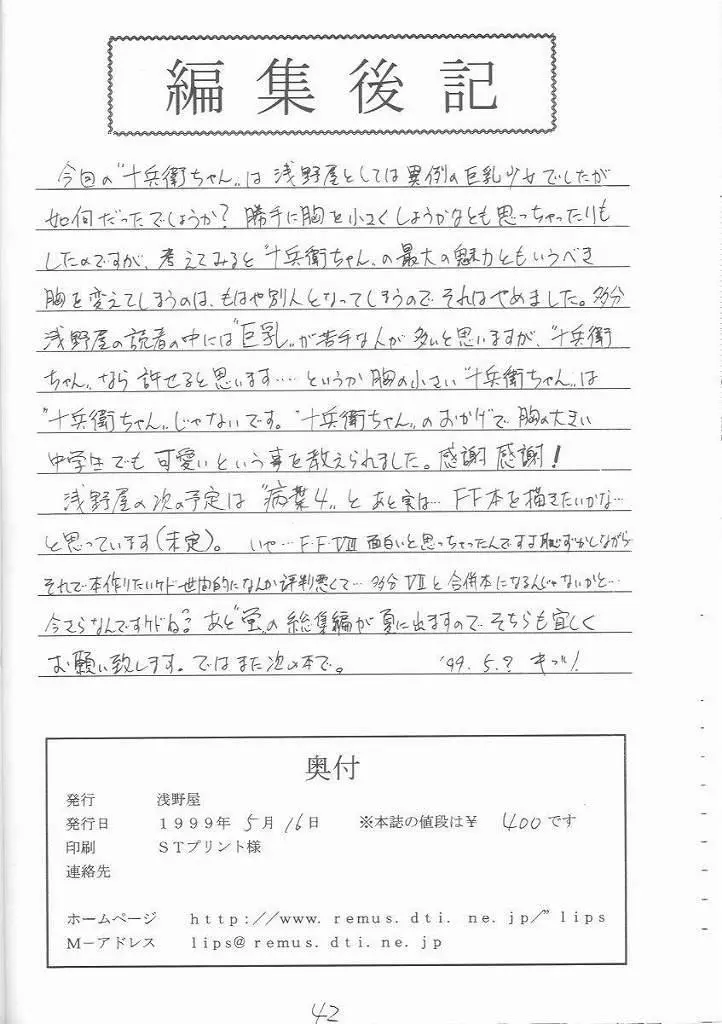 編集後記
今回の"十兵衛ちゃん"は浅野屋としては異例の巨乳少女でしたが
如何だったでしょうか? 勝手に胸を小さくしようかなとも思っちゃったりも
したのですが、考えてみると"十兵衛ちゃん"の最大の魅力ともいうべき
胸を変えてしまうのは、もはや別人となってしまうのでそれはやめました。多分
浅野屋の読者の中には"巨乳"が苦手な人が多いと思いますが、"十兵衛
ちゃん"なら許せると思います‥‥というか胸の小さい"十兵衛ちゃん"は
"十兵衛ちゃん"じゃないです。"十兵衛ちゃん"のおかげで胸の大きい
中学生でも可愛いという事を教えられました。感謝感謝!
浅野屋の次の予定は"病葉4"とあと実は…FF本を描きたいかな…
と思っています(未定)。いや…F・FⅧ面白いと思っちゃったんですよ恥ずかしながら
それで本作りたいケド世間的になんか評判悪くて…多分Ⅶと合併本になるんじゃないかと…
今さらなんですケドね? あと"蛍"の総集編が夏に出ますのでそちらも宜しく
お願い致します。ではまた次の本で。 '99.5.?
奥付
発行 浅野屋
発行日 1999年5月16日 ※本誌の値段は¥400です
印刷 STプリント様
連絡先
ホームページ http://www.remus.dti.ne.jp/~lips
M-アドレス lips@remus.dti.ne.jp
42